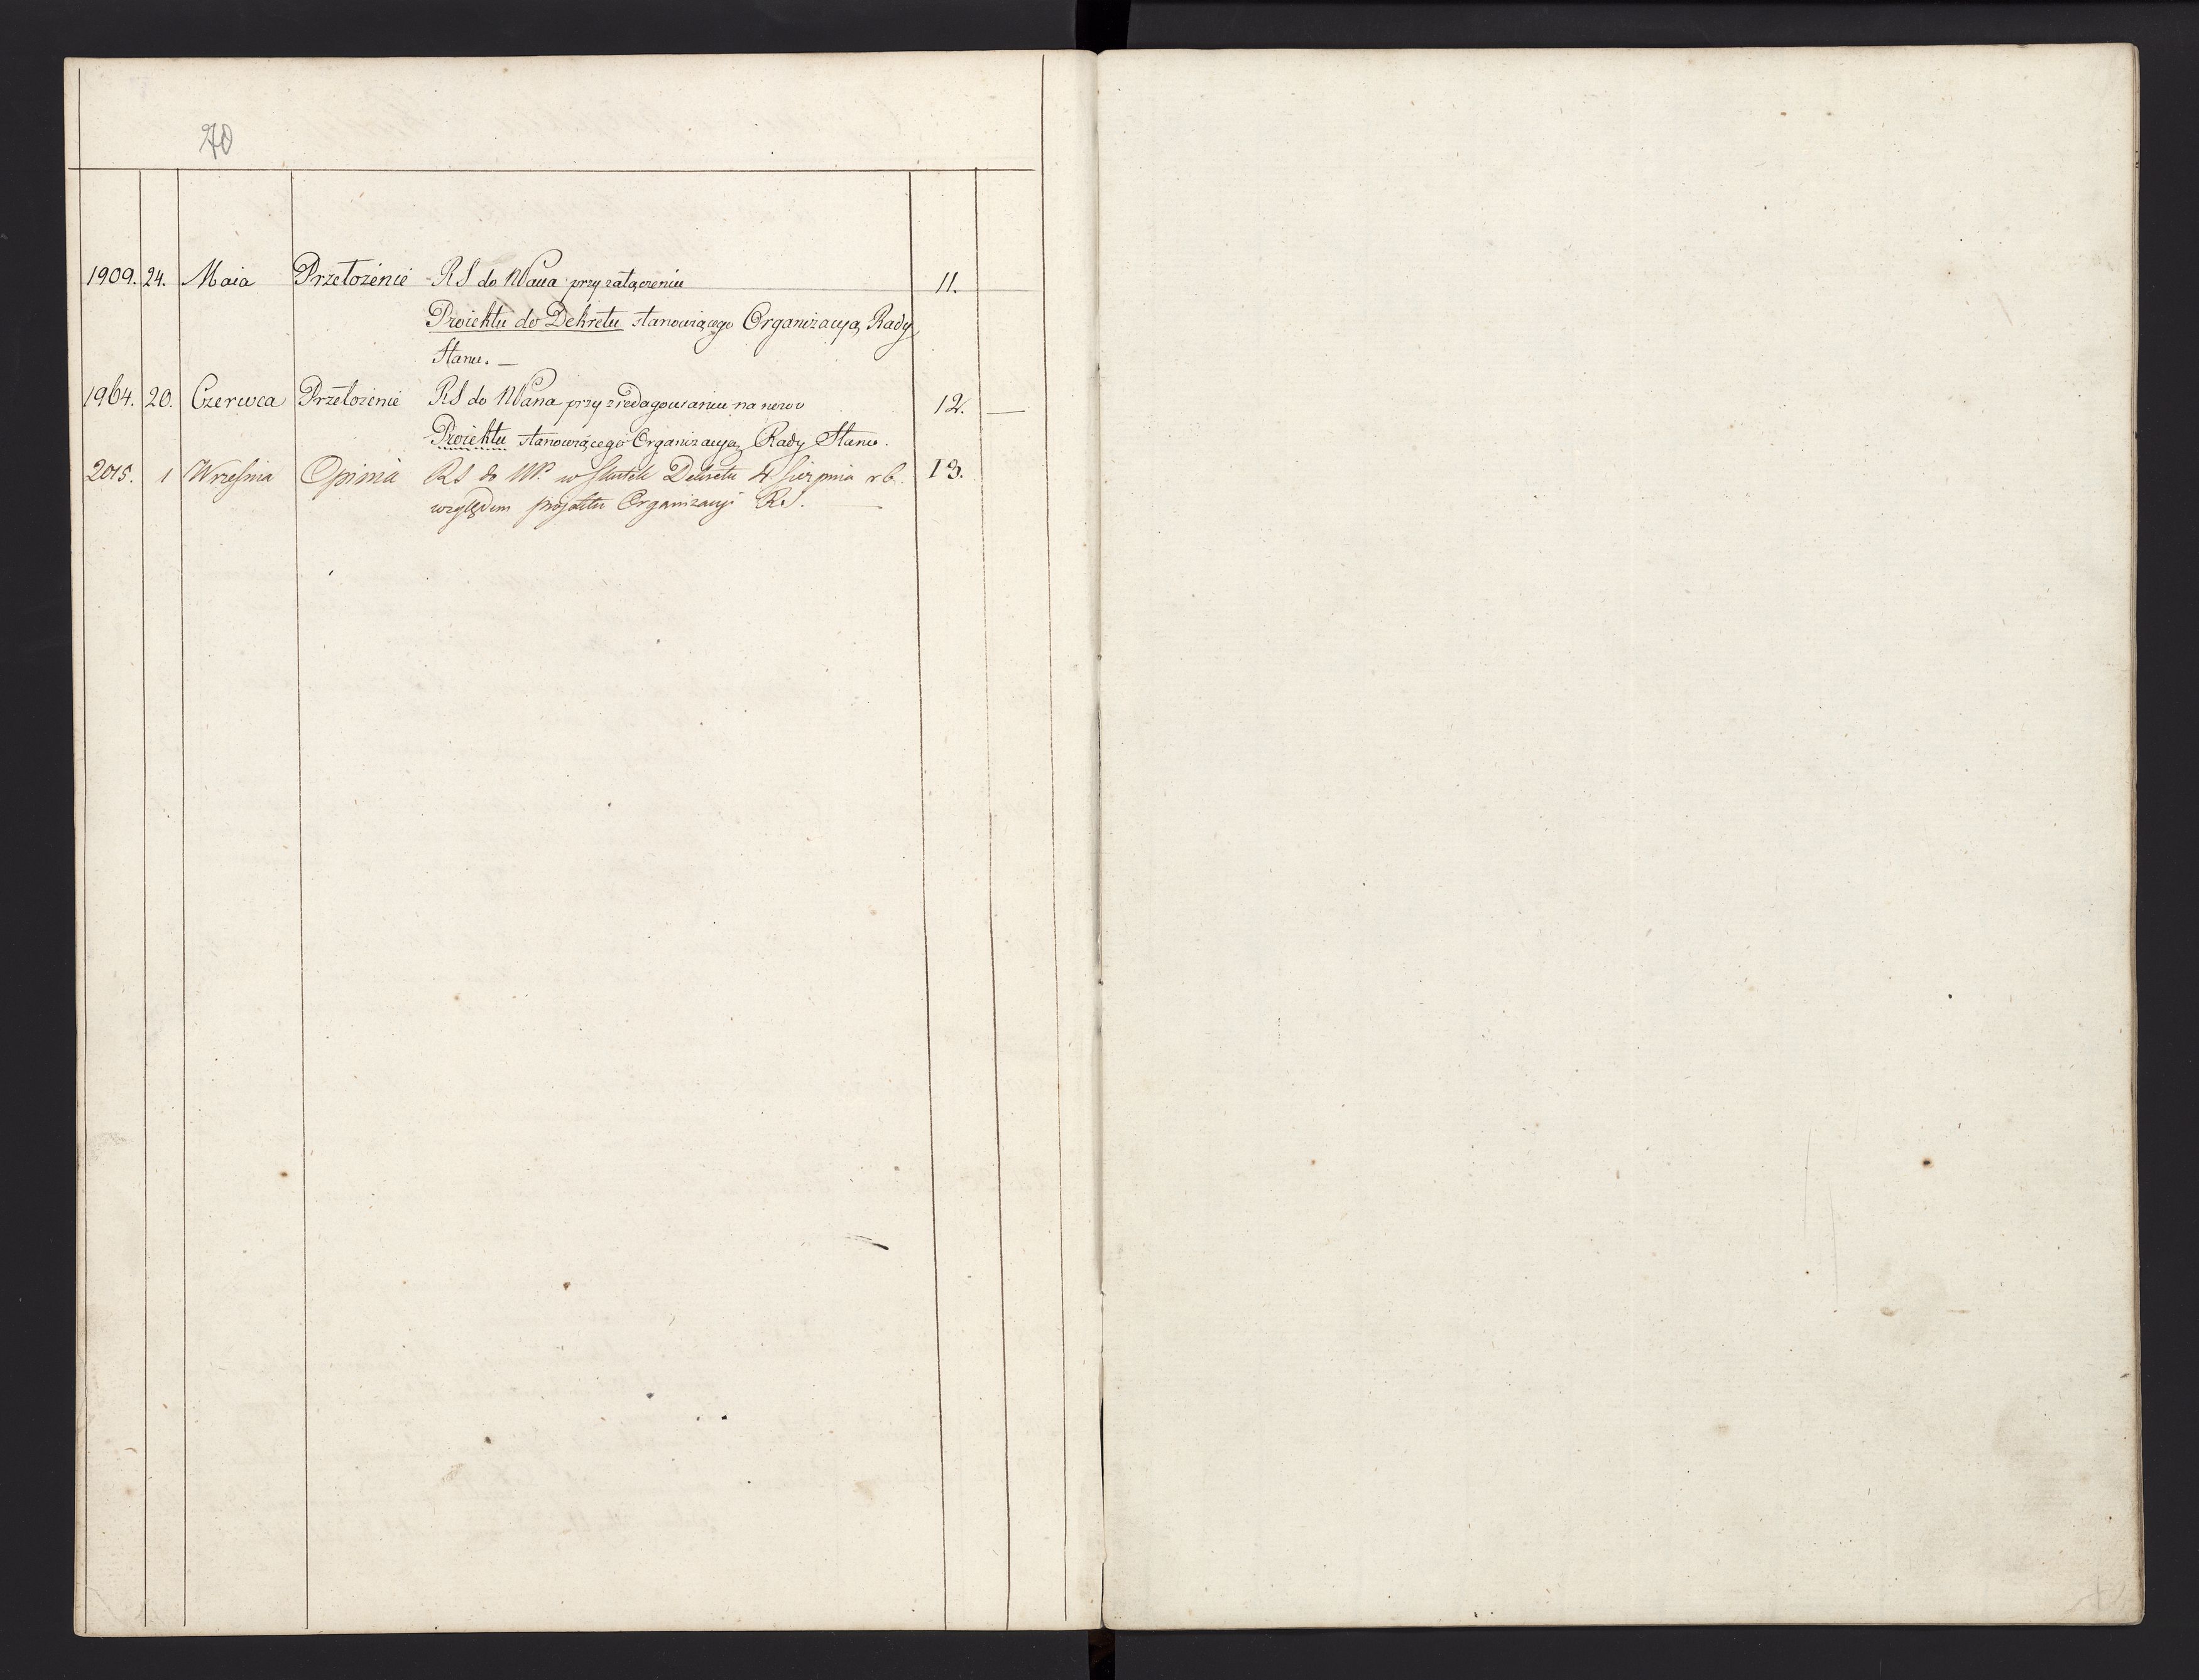 70
1909. 24. Maia Przełożenie RS do NPana przy załączeniu 11.
Proiektu do Dekretu stanowiącego Organizacyą Rady
Stanu. —
1964. 20. Czerwca Przełożenie RS do NPana przy zredagowaniu na nowo 12. —
Proiektu stanowiącego Organizacyą Rady Stanu.
2015. 1 Września Opinia RS do NP. w skutek Dekretu 4 Sierpnia r.b. 13.
względem projektu Organizacyi RS. —